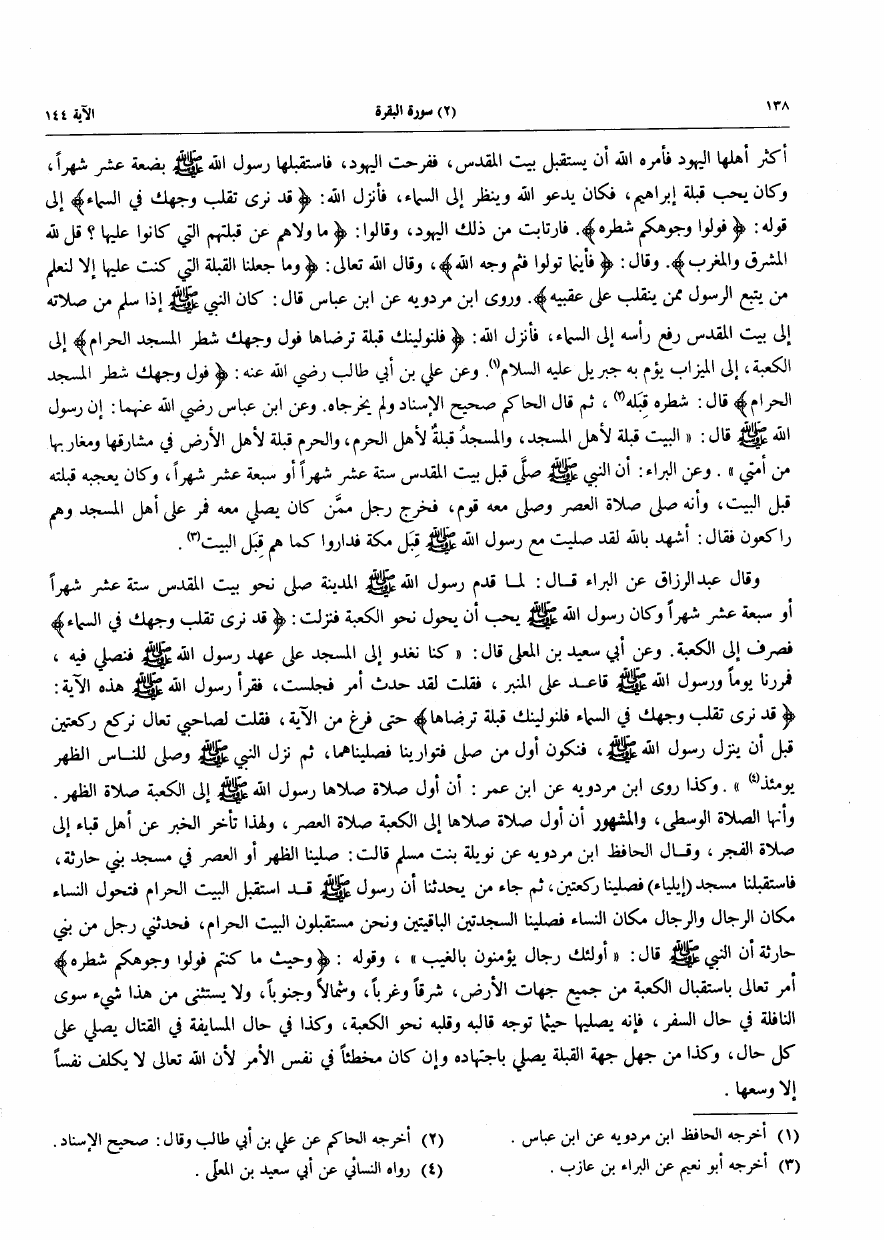 ١٣٨ (٢) سورة البقرة الآية ١٤٤
أكثر أهلها اليهود فأمره الله أن يستقبل بيت المقدس، ففرحت اليهود، فاستقبلها رسول الله ﷺ بضعة عشر شهراً،
وكان يحب قبلة إبراهيم، فكان يدعو الله وينظر إلى السماء، فأنزل الله: ﴿ قد نرى تقلب وجهك في السماء﴾ إلى
قوله: ﴿ فولوا وجوهكم شطره﴾. فارتابت من ذلك اليهود، وقالوا: ﴿ ما ولاهم عن قبلتهم التي كانوا عليها ؟ قل لله
المشرق والمغرب﴾. وقال: ﴿ فأينما تولوا فثم وجه الله﴾، وقال الله تعالى: ﴿ وما جعلنا القبلة التي كنت عليها إلا لنعلم
من يتبع الرسول ممن ينقلب على عقبيه﴾. وروى ابن مردويه عن ابن عباس قال: كان النبي ﷺ إذا سلم من صلاته
إلى بيت المقدس رفع رأسه إلى السماء، فأنزل الله: ﴿ فلنولينك قبلة ترضاها فول وجهك شطر المسجد الحرام﴾ إلى
الكعبة، إلى الميزاب يؤم به جبريل عليه السلام(١). وعن علي بن أبي طالب رضي الله عنه: ﴿ فول وجهك شطر المسجد
الحرام﴾ قال: شطره قِبَله(٢) ، ثم قال الحاكم صحيح الإسناد ولم يخرجاه. وعن ابن عباس رضي الله عنهما: إن رسول
الله ﷺ قال: « البيت قبلة لأهل المسجد، والمسجدُ قبلةٌ لأهل الحرم، والحرم قبلة لأهل الأرض في مشارقها ومغاربها
من أمتي » . وعن البراء: أن النبي ﷺ صلَّى قبل بيت المقدس ستة عشر شهراً أو سبعة عشر شهراً، وكان يعجبه قبلته
قبل البيت، وأنه صلى صلاة العصر وصلى معه قوم، فخرج رجل ممَّن كان يصلي معه فمر على أهل المسجد وهم
راكعون فقال: أشهد بالله لقد صليت مع رسول الله ﷺ قِبَل مكة فداروا كما هم قِبَل البيت(٣).
وقال عبدالرزاق عن البراء قـال: لمـا قدم رسول الله ﷺ المدينة صلى نحو بيت المقدس ستة عشر شهراً
أو سبعة عشر شهراً وكان رسول الله ﷺ يحب أن يحول نحو الكعبة فنزلت: ﴿ قد نرى تقلب وجهك في السماء﴾
فصرف إلى الكعبة. وعن أبي سعيد بن المعلى قال: « كنا نغدو إلى المسجد على عهد رسول الله ﷺ فنصلي فيه ،
فمررنا يوماً ورسول الله ﷺ قاعـد على المنبر ، فقلت لقد حدث أمر فجلست، فقرأ رسول الله ﷺ هذه الآية:
﴿ قد نرى تقلب وجهك في السماء فلنولينك قبلة ترضاها﴾ حتى فرغ من الآية، فقلت لصاحبي تعال نركع ركعتين
قبل أن ينزل رسول الله ﷺ ، فنكون أول من صلى فتوارينا فصليناهما، ثم نزل النبي ﷺ وصلى للنـاس الظهر
يومئذ(٤) » . وكذا روى ابن مردويه عن ابن عمر : أن أول صلاة صلاها رسول الله ﷺ إلى الكعبة صلاة الظهر .
وأنها الصلاة الوسطى، والمشهور أن أول صلاة صلاها إلى الكعبة صلاة العصر ، ولهذا تأخر الخبر عن أهل قباء إلى
صلاة الفجر ، وقـال الحافظ ابن مردويه عن نويلة بنت مسلم قالت: صلينا الظهر أو العصر في مسجد بني حارثة،
فاستقبلنا مسجد (إيلياء) فصلينا ركعتين، ثم جاء من يحدثنا أن رسول ﷺ قـد استقبل البيت الحرام فتحول النساء
مكان الرجال والرجال مكان النساء فصلينا السجدتين الباقيتين ونحن مستقبلون البيت الحرام، فحدثني رجل من بني
حارثة أن النبي ﷺ قال: « أولئك رجال يؤمنون بالغيب » ، وقوله : ﴿ وحيث ما كنتم فولوا وجوهكم شطره﴾
أمر تعالى باستقبال الكعبة من جميع جهات الأرض، شرقاً وغرباً، وشمالاً وجنوباً، ولا يستثنى من هذا شيء سوى
النافلة في حال السفر ، فإنه يصليها حيثما توجه قالبه وقلبه نحو الكعبة، وكذا في حال المسايفة في القتال يصلي على
كل حال، وكذا من جهل جهة القبلة يصلي باجتهاده وإن كان مخطئاً في نفس الأمر لأن الله تعالى لا يكلف نفساً
إلا وسعها .
(١) أخرجه الحافظ ابن مردويه عن ابن عباس . (٢) أخرجه الحاكم عن علي بن أبي طالب وقال: صحيح الإسناد.
(٣) أخرجه أبو نعيم عن البراء بن عازب . (٤) رواه النسائي عن أبي سعيد بن المعلّى .